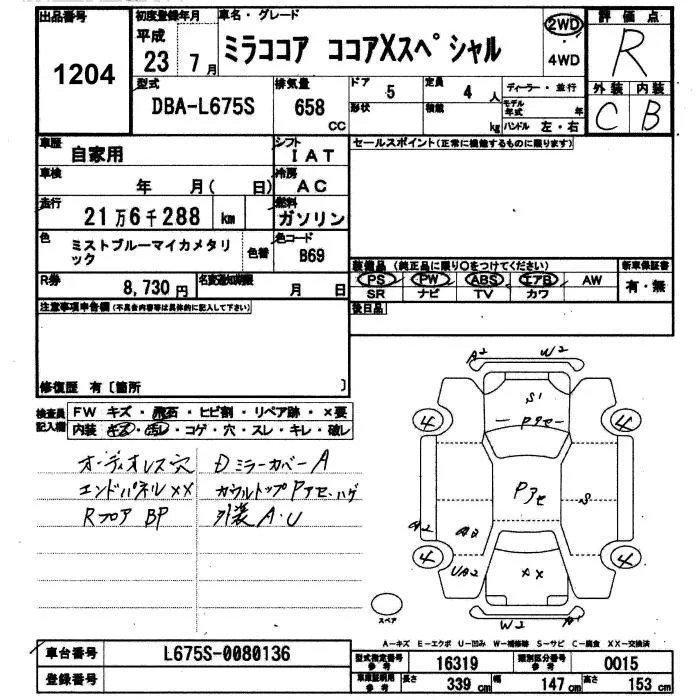 出品番号 初度登録年月 車名・グレード 評価点
1204 平成 23 7月 ミラココア ココアXスペシャル 2WD 4WD R
型式 排気量 ドア 5 定員 4 人 ディーラー・並行 外装 内装
DBA-L675S 658 CC 形状 積載 kg モデル年式 年 ハンドル 左・右 C B
車歴 自家用 シフト IAT セールスポイント(正常に機能するものに限ります)
車検 年 月( 日) 冷房 AC
走行 21万6千288 km 燃料 ガソリン
色 ミストブルーマイカメタリック 色替 色コード B69
装備品 (純正品に限り○をつけてください) 新車保証書
PS PW ABS エアB AW 有・無
SR ナビ TV カワ
R券 8,730円 名変通知期限 月 日
注意事項申告欄(不具合内容等は具体的に記入して下さい) 後日品
修復歴 有〔箇所 〕
検査員記入欄 FW キズ・飛石・ヒビ割・リペア跡・×要
内装 キズ・汚レ・コゲ・穴・スレ・キレ・破レ
オーディオレス穴 DミラーカバーA
エンドパネルXX カウルトップPアセ・ハゲ
Rフロア BP 外装A・U
A2 W2
S1
Pアセ
4 4
Pアセ S
A2 A2
4 4
UA2 AX
W2 A1
スペア
A-キズ E-エクボ U-凹み W-補修跡 S-サビ C-腐食 XX-交換済
車台番号 L675S-0080136
登録番号
型式指定番号 参考 16319 類別区分番号 参考 0015
車庫証明用 参考 長さ 339 cm 幅 147 cm 高さ 153 cm